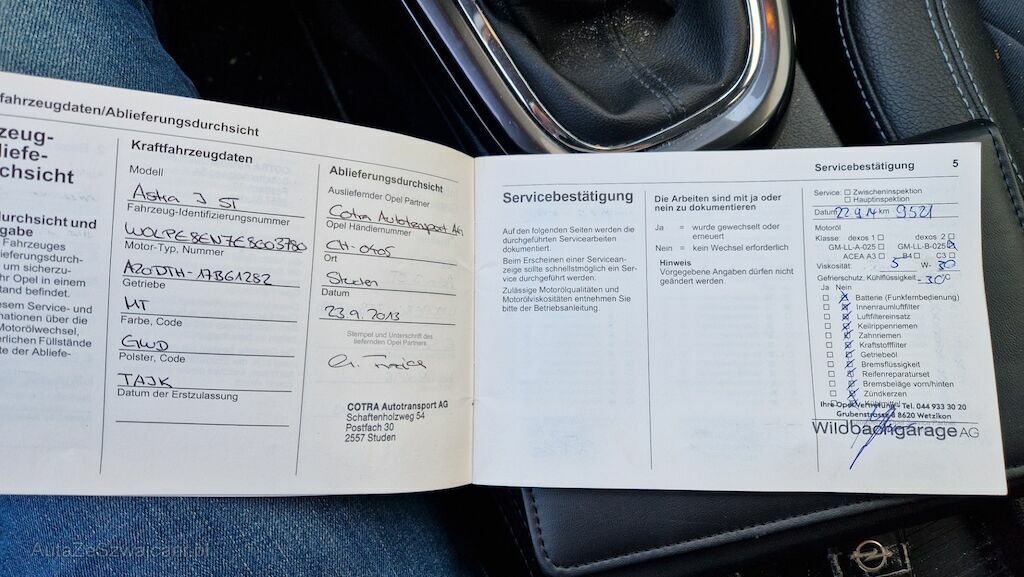 fahrzeugdaten/Ablieferungsdurchsicht
zeug-
liefe-
chsicht
urchsicht und
gabe
Fahrzeuges
lieferungsdurch-
um sicherzu-
hr Opel in einem
stand befindet.
esem Service- und
mationen über die
Motorölwechsel,
erlichen Füllstände
te der Abliefe-
Kraftfahrzeugdaten
Modell
Astra J ST
Fahrzeug-Identifizierungsnummer
Motor-Typ, Nummer
A20DTH-17B61282
Getriebe
MT
Farbe, Code
GWD
Polster, Code
TAJK
Datum der Erstzulassung
Ablieferungsdurchsicht
Ausliefernder Opel Partner
Cotra Autotransport AG
Opel Händlernummer
CH-0405
Ort
Studen
Datum
23.9.2013
Stempel und Unterschrift des
liefernden Opel Partners
COTRA Autotransport AG
Schaftenholzweg 54
Postfach 30
2557 Studen
Servicebestätigung
5
Servicebestätigung
Auf den folgenden Seiten werden die
durchgeführten Servicearbeiten
dokumentiert.
Beim Erscheinen einer Serviceanzei-
ge sollte schnellstmöglich ein Ser-
vice durchgeführt werden.
Zulässige Motorölqualitäten und
Motorölviskositäten entnehmen Sie
bitte der Betriebsanleitung.
Die Arbeiten sind mit ja oder
nein zu dokumentieren
Ja = wurde gewechselt oder
erneuert
Nein = kein Wechsel erforderlich
Hinweis
Vorgegebene Angaben dürfen nicht
geändert werden.
Service: Zwischeninspektion
Hauptinspektion
Datum 22.9.14 km 9521
Motoröl
Klasse: dexos 1 dexos 2
GM-LL-A-025 GM-LL-B-025
ACEA A3 B4 C3
Viskosität: 5 W- 30
Gefrierschutz, Kühlflüssigkeit -30 °C
Ja Nein
Batterie (Funkfernbedienung)
Innenraumluftfilter
Luftfiltereinsatz
Keilrippenriemen
Zahnriemen
Kraftstofffilter
Getriebeöl
Bremsflüssigkeit
Reifenreparaturset
Bremsbeläge vorn/hinten
Zündkerzen
Ihre Opel-Vertretung Tel. 044 933 30 20
Grubenstrasse 8 8620 Wetzikon
Wildbachgarage AG
AutaZeSzwajcarii.pl